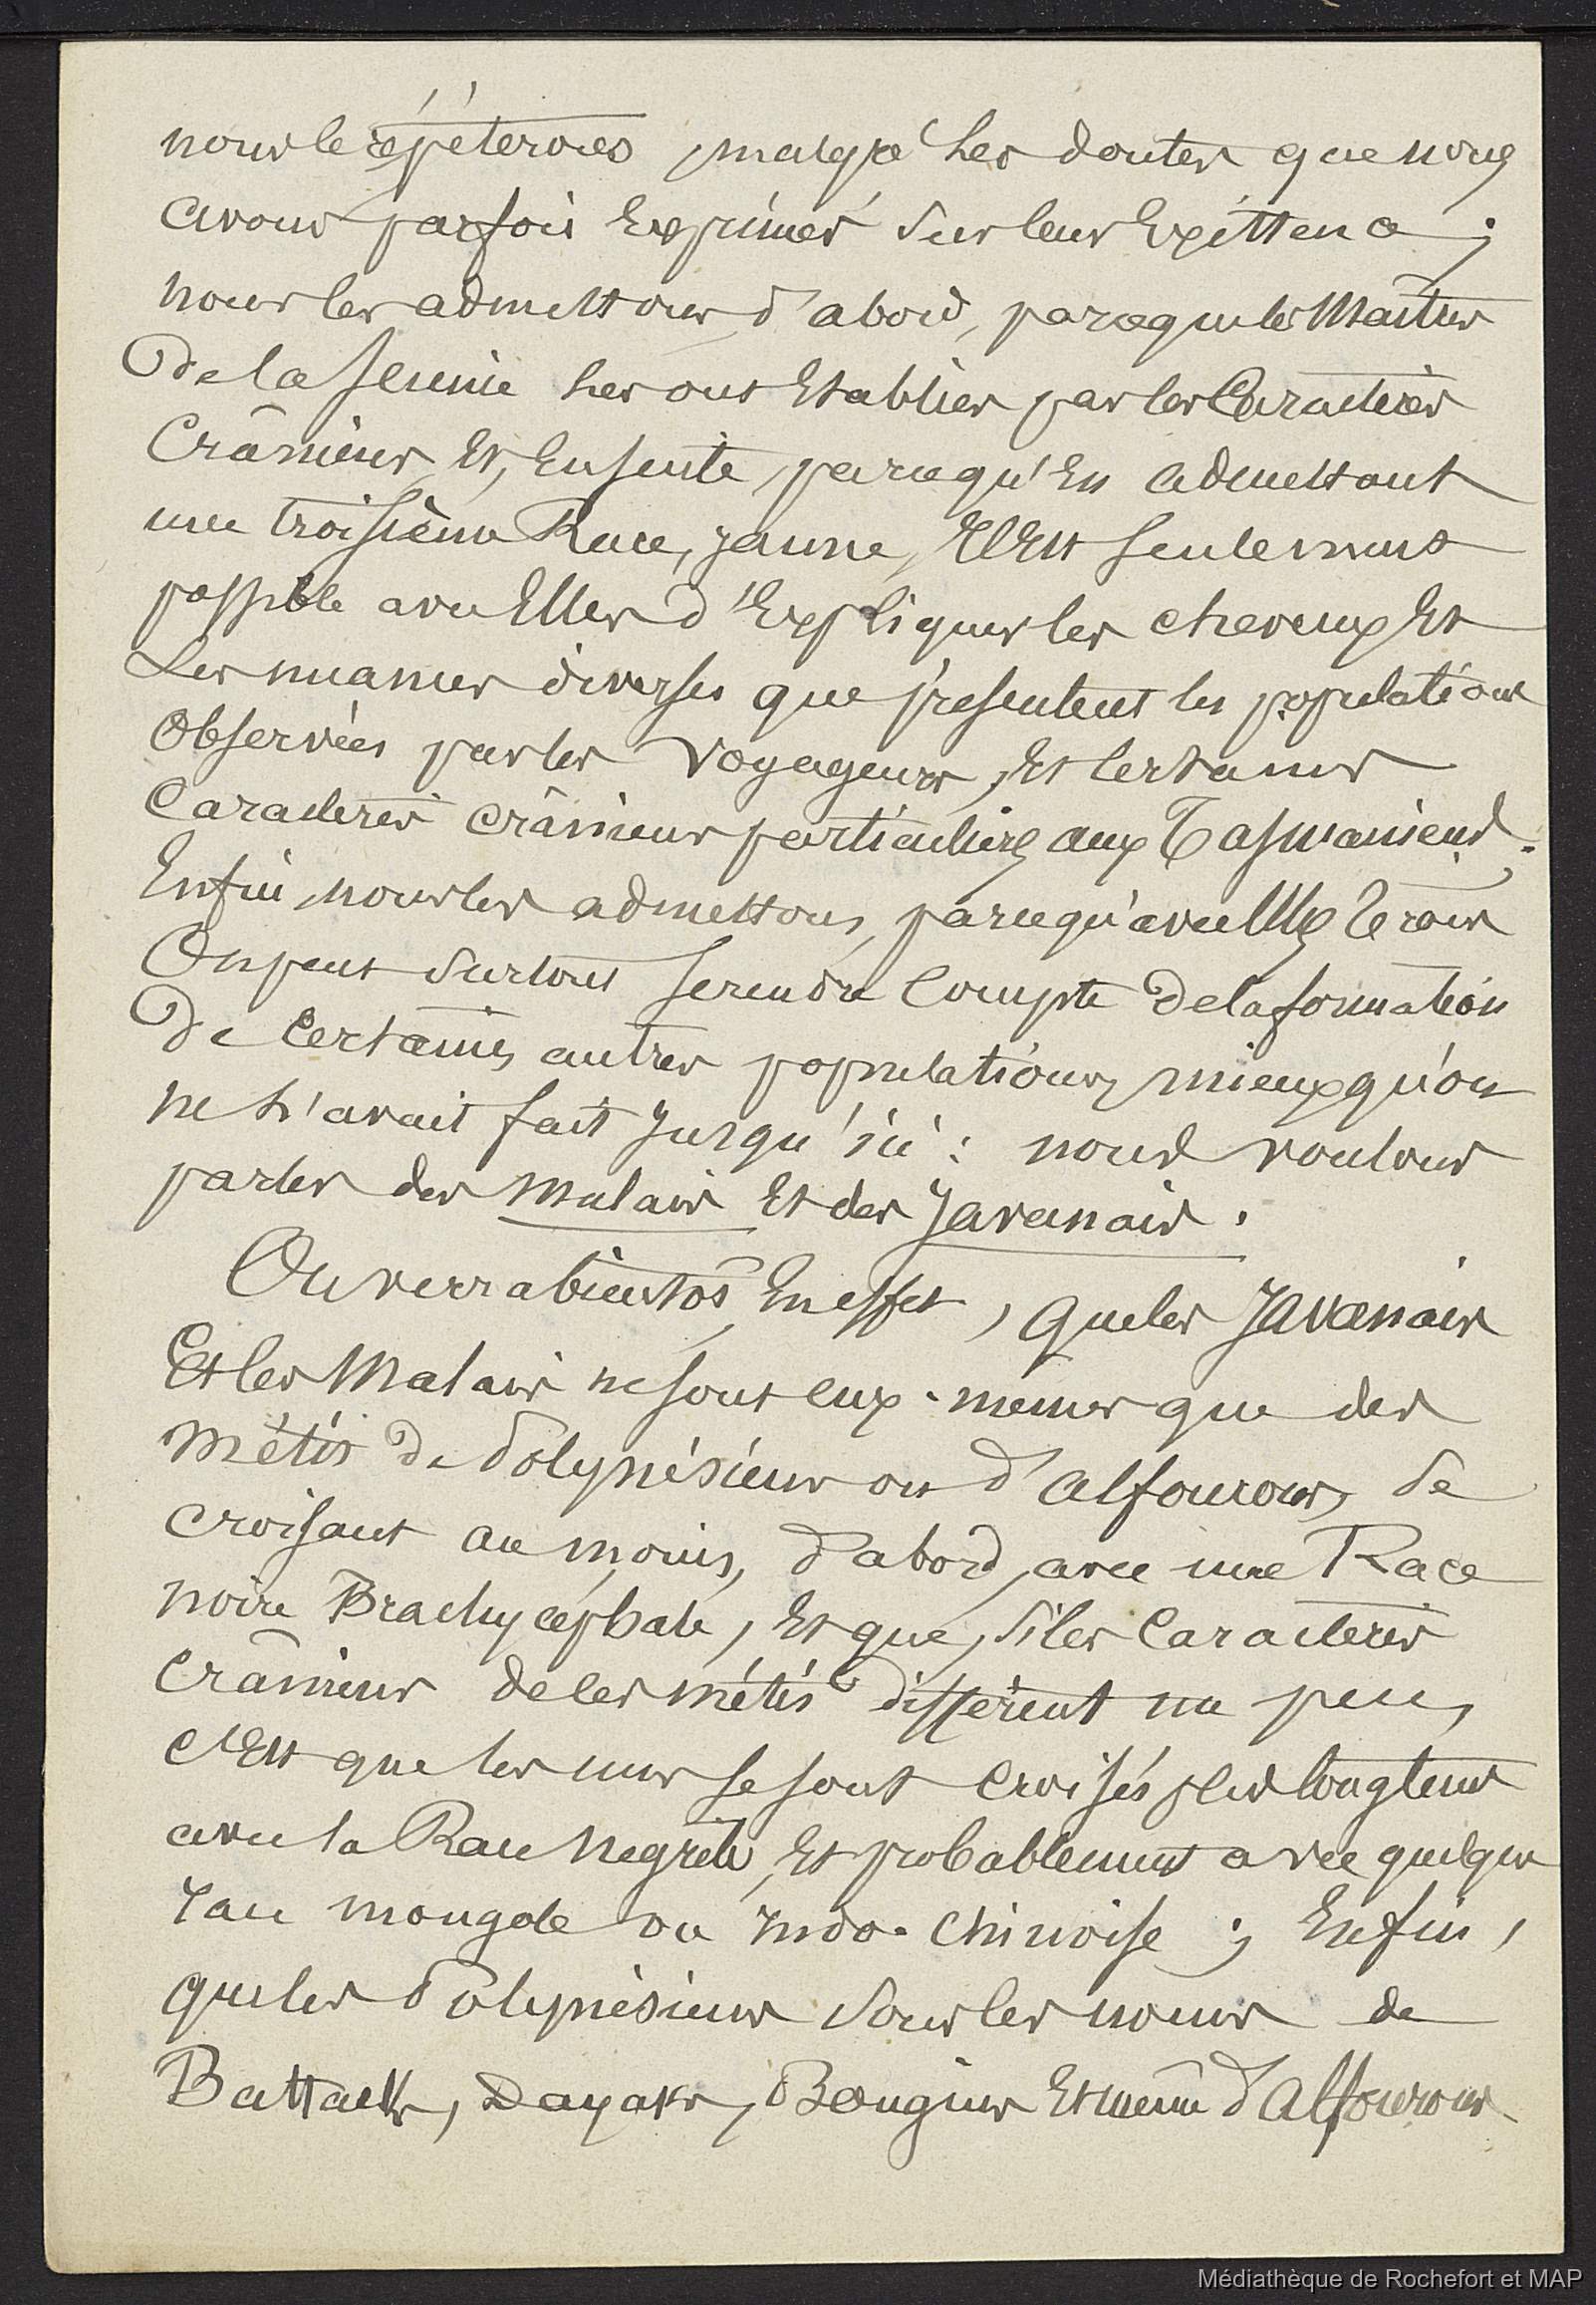 nous le répéterons, malgré les doutes que nous
avons parfois exprimés sur leur existence ;
nous les admettons d'abord, parceque les Maîtres
De la science les ont établies par les Caractères
Crâniens, et, ensuite, parcequ'en admettant
une troisième Race, jaune, il est seulement
possible avec elles d'expliquer les cheveux et
les nuances diverses que présentent les populations
observées par les voyageurs, et certains
Caractères crâniens particuliers aux Tasmaniens.
Enfin, nous les admettons, parcequ'avec elles trois
On peut surtout se rendre Compte de la formation
De Certaines autres populations, mieux qu'on
ne l'avait fait jusqu'ici : nous voulons
parler des Malais et des Javanais.
On verra bientôt, en effet, que les Javanais
Et les Malais ne sont eux-mêmes que des
métis de Polynésiens ou d'alfourous, se
croisant au moins, d'abord, avec une Race
noire Brachycéphale, et que, si les Caractères
Crâniens de ces métis diffèrent un peu,
c'est que les uns se sont croisés plus longtems
avec la Race négrite, et probablement avec quelque
race mongole ou indo-chinoise ; Enfin,
que les Polynésiens sous les noms de
Battaks, Dayaks, Bouguis et même d'Alfourous
Médiathèque de Rochefort et MAP